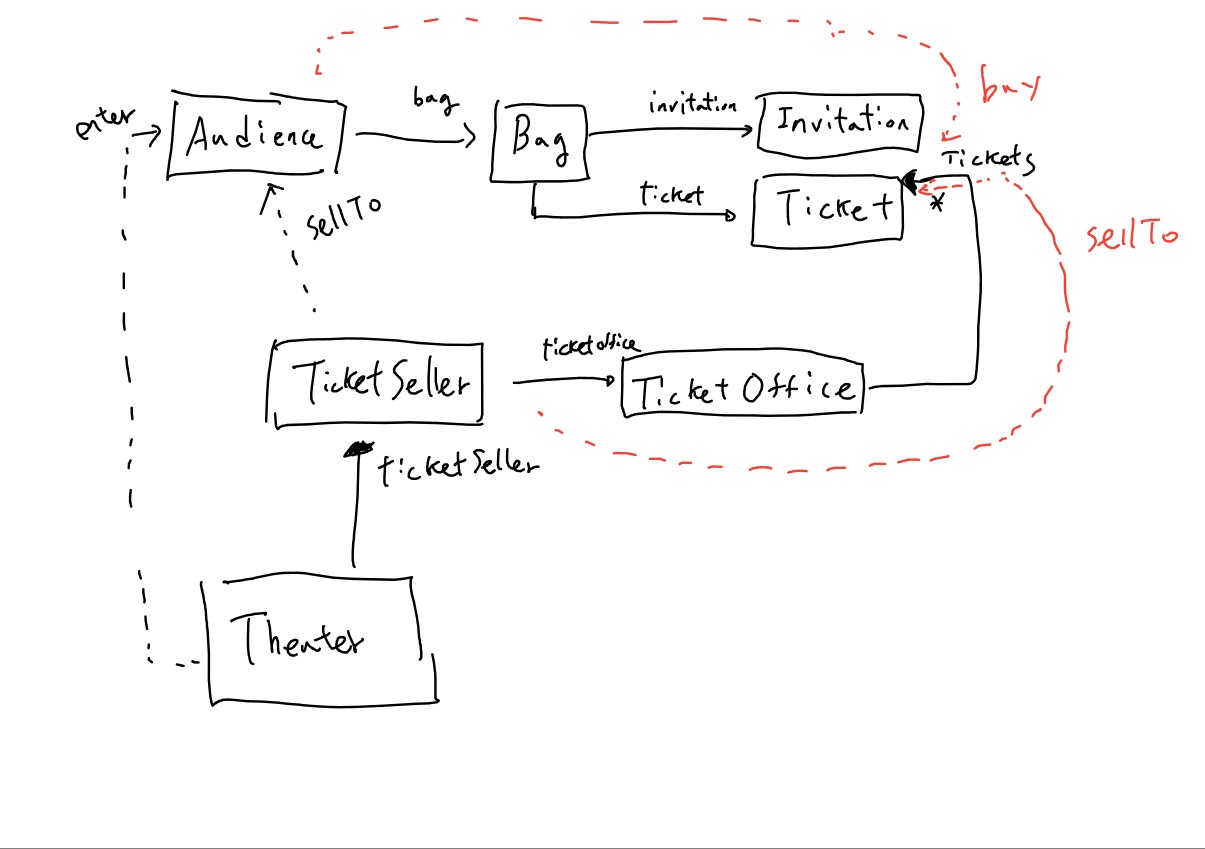 buy
enter
Audience
bag
Bag
invitation
Invitation
Tickets
ticket
Ticket
*
sellTo
sellTo
TicketSeller
ticketoffice
TicketOffice
ticketSeller
Theater